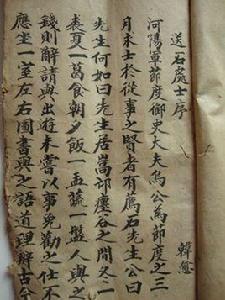 送石處士序
韓愈
河陽軍節度御史大夫烏公為節度之三
月求士於從事之賢者有薦石先生公曰
先生何如曰先生居嵩邙瀍谷之間冬一
裘夏一葛食朝夕飯一盂蔬一盤人與之
錢則辭請與出遊未嘗以事免勸之仕不
應坐一室左右圖書與之語道理辨古今